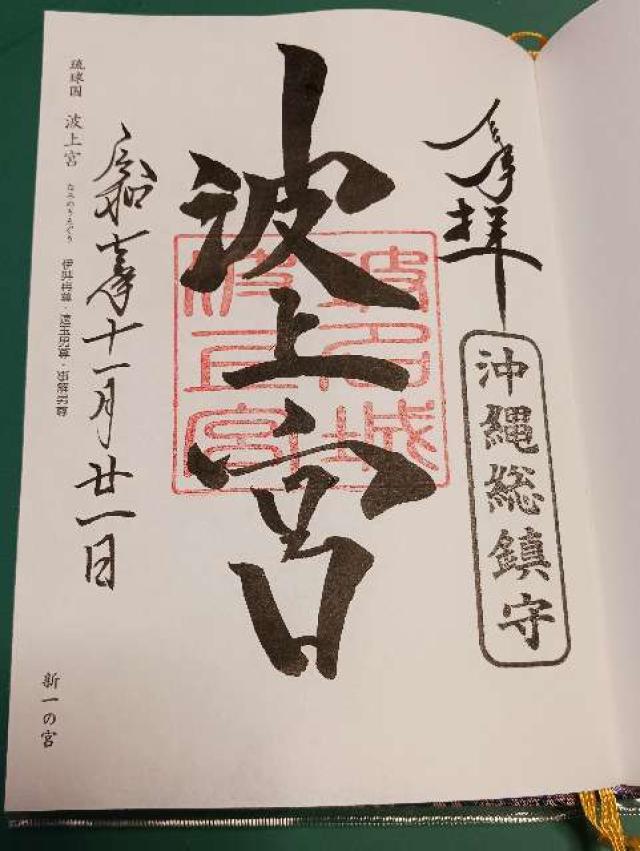 奉拝
沖縄総鎮守
波上宮
波之城
波上宮
令和六年十一月廿一日
琉球国 波上宮 なみのうえぐう 伊弉冉尊・速玉男尊・事解男尊
新一の宮